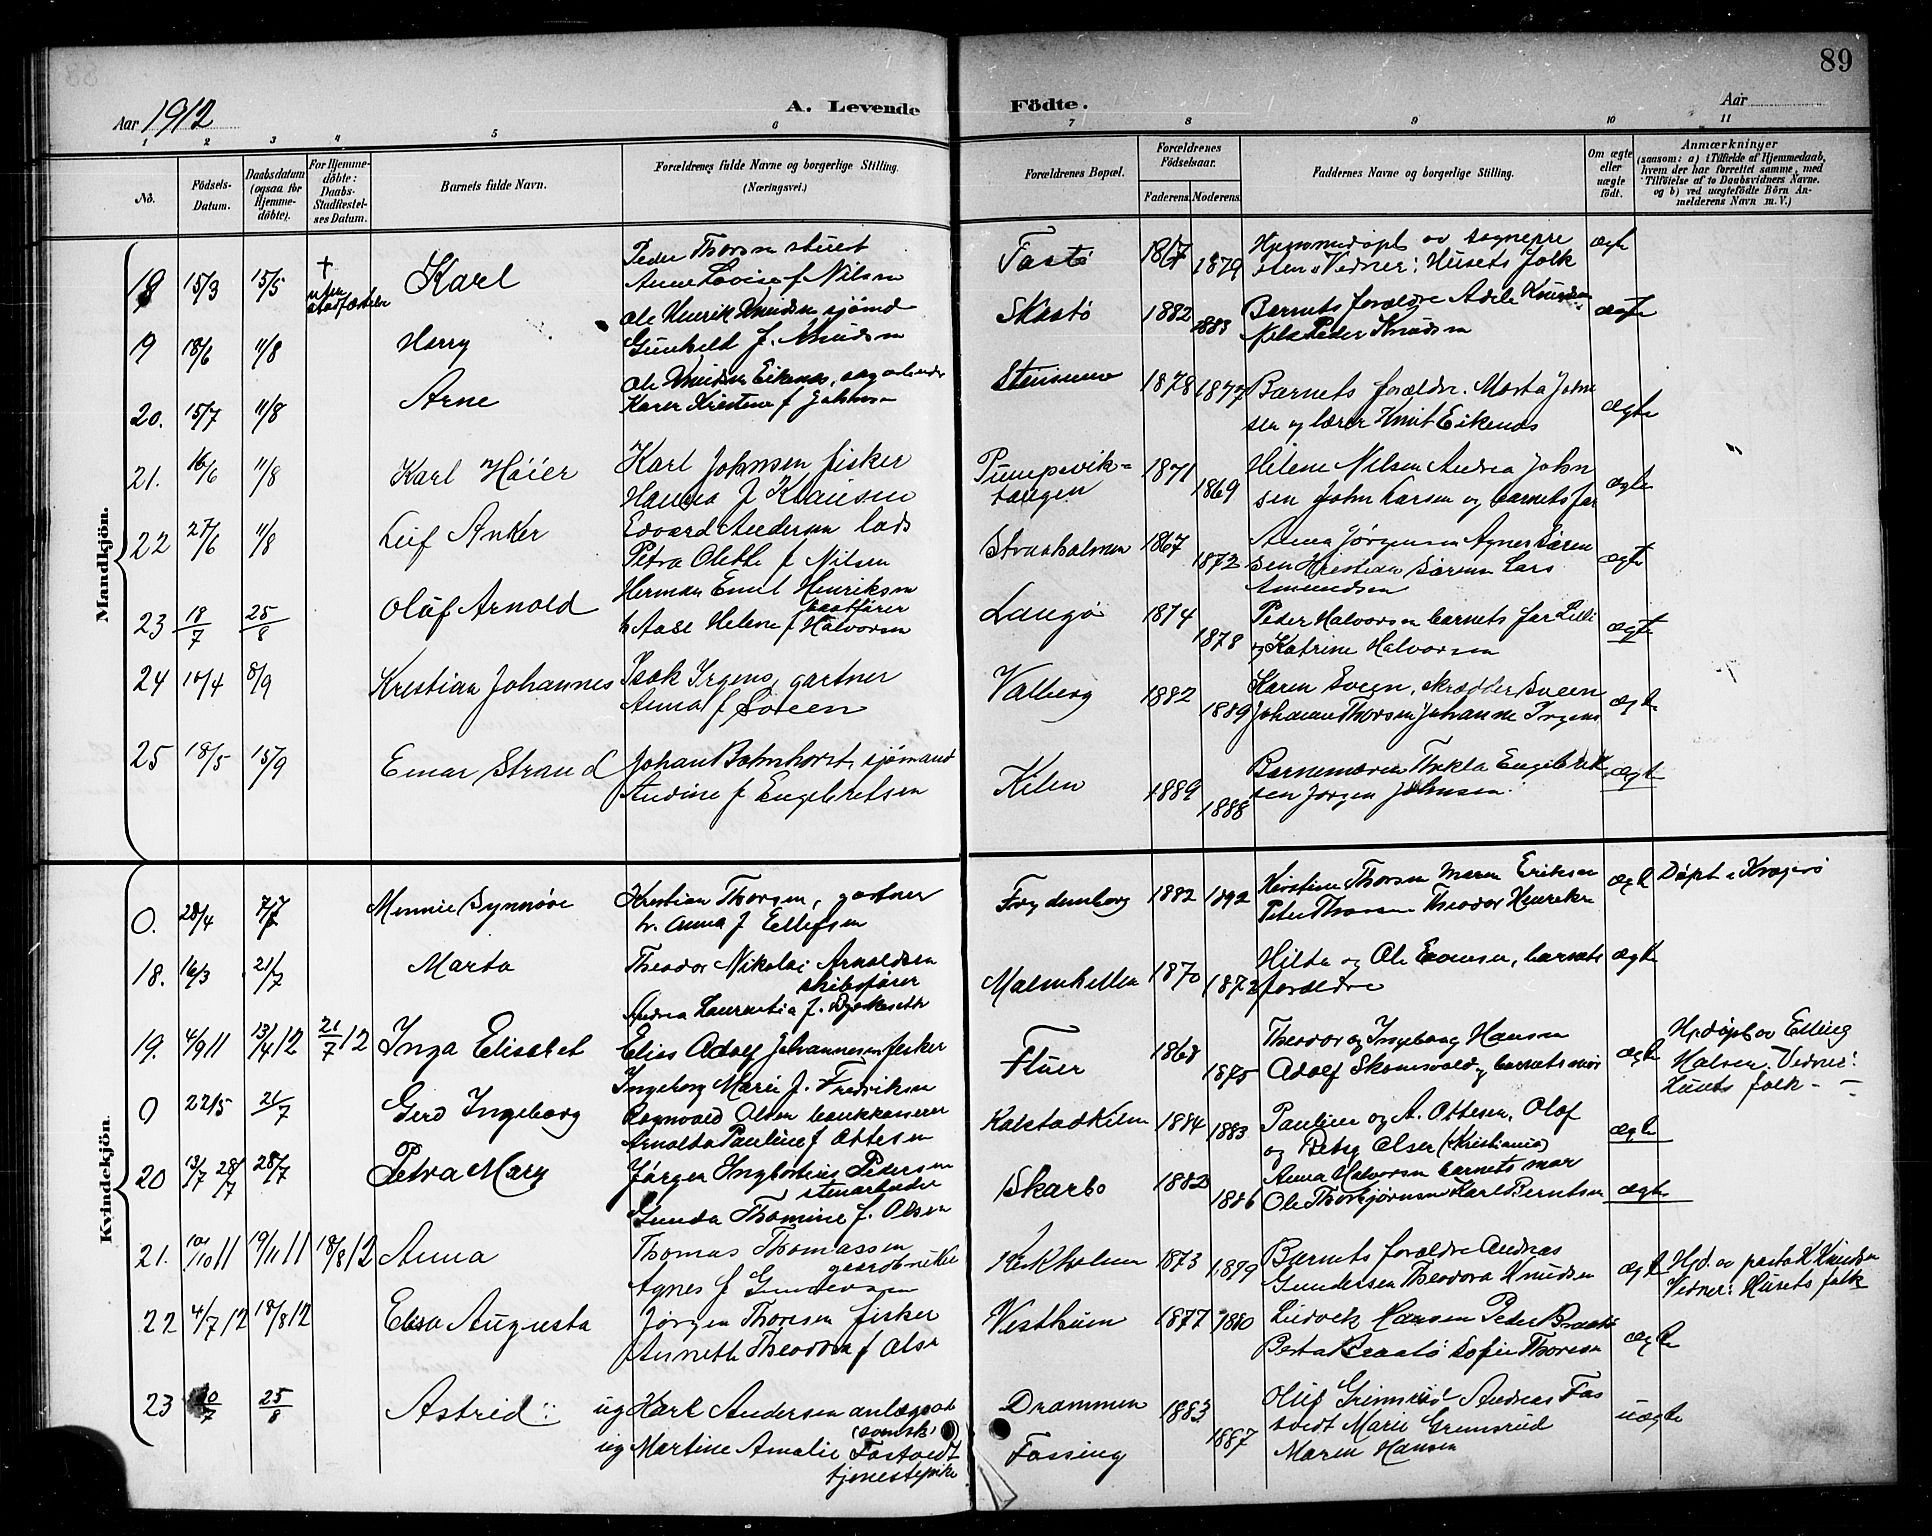 89
Aar 1912
A. Levende Födte.
Aar
1 2 3 4 5 6 7 8 9 10 11
No.
Födsels-Datum.
Daabsdatum (ogsaa for Hjemme-döbte).
For Hjemme-döbte: Daabs-Stadfæstel-ses Datum.
Barnets fulde Navn.
Forældrenes fulde Navne og borgerlige Stilling. (Næringsvei.)
Forældrenes Bopæl.
Forældrenes Födselsaar.
Faderens. Moderens.
Faddernes Navne og borgerlige Stilling.
Om ægte eller uægte födt.
Anmærkninger
(saasom: a) i Tilfælde af Hjemmedaab, hvem der har forrettet samme, med Tilföielse af to Daabsvidners Navne. og b) ved uægtefödte Börn An-melderens Navn m. V.)
Mandkjön.
18 15/3 15/5 † uten stadfæstelse Karl
Peder Thorsen stuert
Anne Lovise f Nilsen
1867 1879
Hjemmedøpt av sognepre
sten Vidner: Husets folk
ægte
19 18/6 11/8 Harry
Ole Henrik Knudsen sjømd
Gunhild f. Knudsen
Skåtø 1882 1883
Barnets forældre Adele Knudsen
Nils Peder Knudsen
ægte
20. 15/7 11/8 Arne
Ole Knudsen Eikenæs,
Karen Kristine f Jakobsen
1878 1877
Barnets forældre. Marta John
sen og lærer Knut Eikenæs
ægte
21. 16/6 11/8 Karl Høier
Karl Johnsen fisker
Hanna f Klausen
Pumpevik-
tangen
1871 1869
Helene Nilsen Andrea John
sen John Larsen og barnets far
ægte
22 27/6 11/8 Leif Anker
Edvard Andersen lods
Petra Olette f Nilsen
Straaholmen 1867 1872
Anna Jørgensen Agnes Søren
sen Kristian Sørensen Lars
Amundsen
ægte
23 18/7 25/8 Oluf Arnold
Herman Emil Henriksen
baatfører
h Aase Helene f Halvorsen
Langø 1874 1878
Peder Halvorsen barnets far Lilli
og Katrine Halvorsen
ægte
24 10/4 8/9 Kristian Johannes
Isak Irgens, gartner
Anna f Sveen
Valberg 1882 1889
Karen Sveen, skrædder Sveen
Johanne Thorsen Johanne Irgens
ægte
25 18/5 15/9 Einar Strand
Johan Bohnhorst, sjømand
Andine f Engebretsen
Kilen 1889 1888
Barnemoren Thekla Engebret
sen Jørgen Johnsen
ægte
Kvindekjön.
0. 28/4 7/7 Minnie Synnøve
Kristian Thorsen, gartner
h. Anna f Ellefsen
Frydensborg 1882 1892
Kirstine Thorsen Maren Eriksen
Peter Thorsen Theodor Henriksen
ægte
Døpt i Kragerø
18. 16/3 21/7 Marta
Theodor Nikolai Arnoldsen
skibsfører
Andrea Laurentia f.
Malmhellen 1870 1872
Hilda og Ole Evensen, barnets
forældre
ægte
19. 4/9 11 13/1412 21/7 12 Inga Elisabet
Elias Adolf Johannesen fisker
Ingeborg Marie f. Fredriksen
Fluer 1868 1875
Theodor og Ingeborg Hansen
Adolf Skomsvold og barnets mor
ægte
Hj.døpt av Elling
Halsen. Vidner:
Husets folk -
0 22/5 21/7 Gerd Ingeborg
Ragnvald Olsen bankkasserer
Arnolda Pauline f Ottesen
Kalstadkilen 1884 1883
Pauline og A. Ottesen, Olaf
og Betsy Olsen (Kristiania)
ægte
20 13/7 28/7 28/7 Petra Mary
Jørgen Ingbortius Pedersen
stenarbeider
Gunda Thomine f. Olsen
Skarbo 1882 1886
Anna Halvorsen barnets mor
Ole Thorbjørnsen Karl Berntsen
ægte
21. 10/10 11 19/11 11 18/8 12 Anna
Thomas Thomassen
gaardbruker
Agnes f Gundersen
Kirkholmen 1873 1879
Barnets forældre Andreas
Gundersen Theodora Knudsen
ægte
Hjd. av pastor K Knudsen
Vidner: Husets folk
22 4/7 12 18/8 12 Elsa Augusta
Jørgen Thoresen fisker
Anneth Theodora f Olsen
Vesthun 1877 1880
Ludvik Hansen Peder Braatø
Berta Braatø Sofie Thoresen
ægte
23 20/7 25/8 Astrid
ug Karl Andersen anlægsarb
(svensk)
ug Martine Amalie Fostvedt
tjenestepike
Drammen
Fossing
1883 1887
Oluf Grimsrud Andreas Fos
tvedt Marie Grimsrud
Maren Hansen
uægte